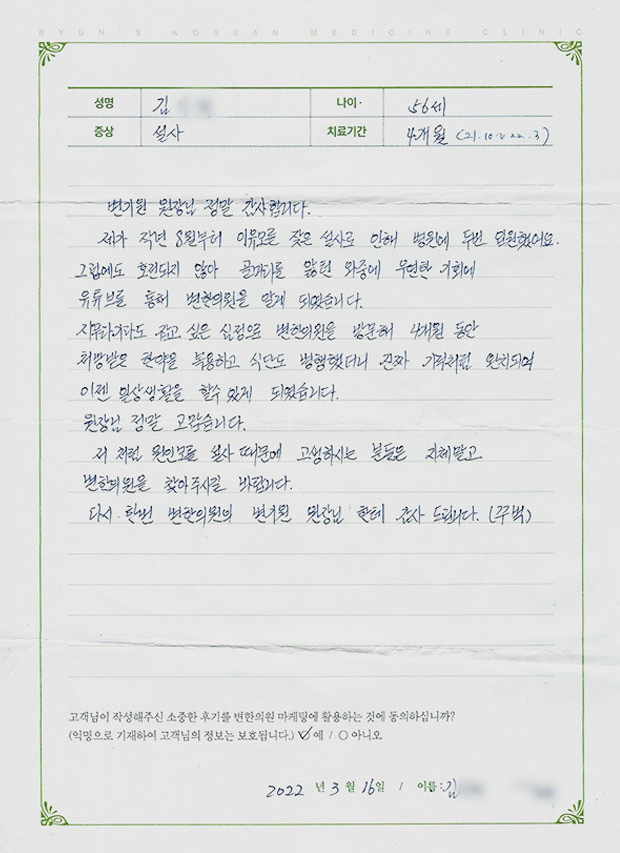 BYUN'S KOREAN MEDICINE CLINIC
성명 김 나이· 56세
증상 설사 치료기간 4개월 (21.10~22.3)
변기원 원장님 정말 감사합니다.
제가 작년 8월부터 이유모를 잦은 설사로 인해 병원에 두번 입원했어요.
그럼에도 호전되지 않아 골머리를 앓던 와중에 우연한 기회에
유튜브를 통해 변한의원을 알게 되었습니다.
지푸라기라도 잡고 싶은 심정으로 변한의원을 방문해 4개월 동안
처방받은 한약을 복용하고 식단도 병행했더니 진짜 기적처럼 완치되어
이젠 일상생활을 할수 있게 되었습니다.
원장님 정말 고맙습니다.
저 처럼 원인모를 설사 때문에 고생하시는 분들은 지체말고
변한의원을 찾아주시길 바랍니다.
다시 한번 변한의원의 변기원 원장님 한테 감사 드립니다. (꾸벅)
고객님이 작성해주신 소중한 후기를 변한의원 마케팅에 활용하는 것에 동의하십니까?
(익명으로 기재하여 고객님의 정보는 보호됩니다.) 예 / 아니오
2022 년 3 월 16일 / 이름: 김